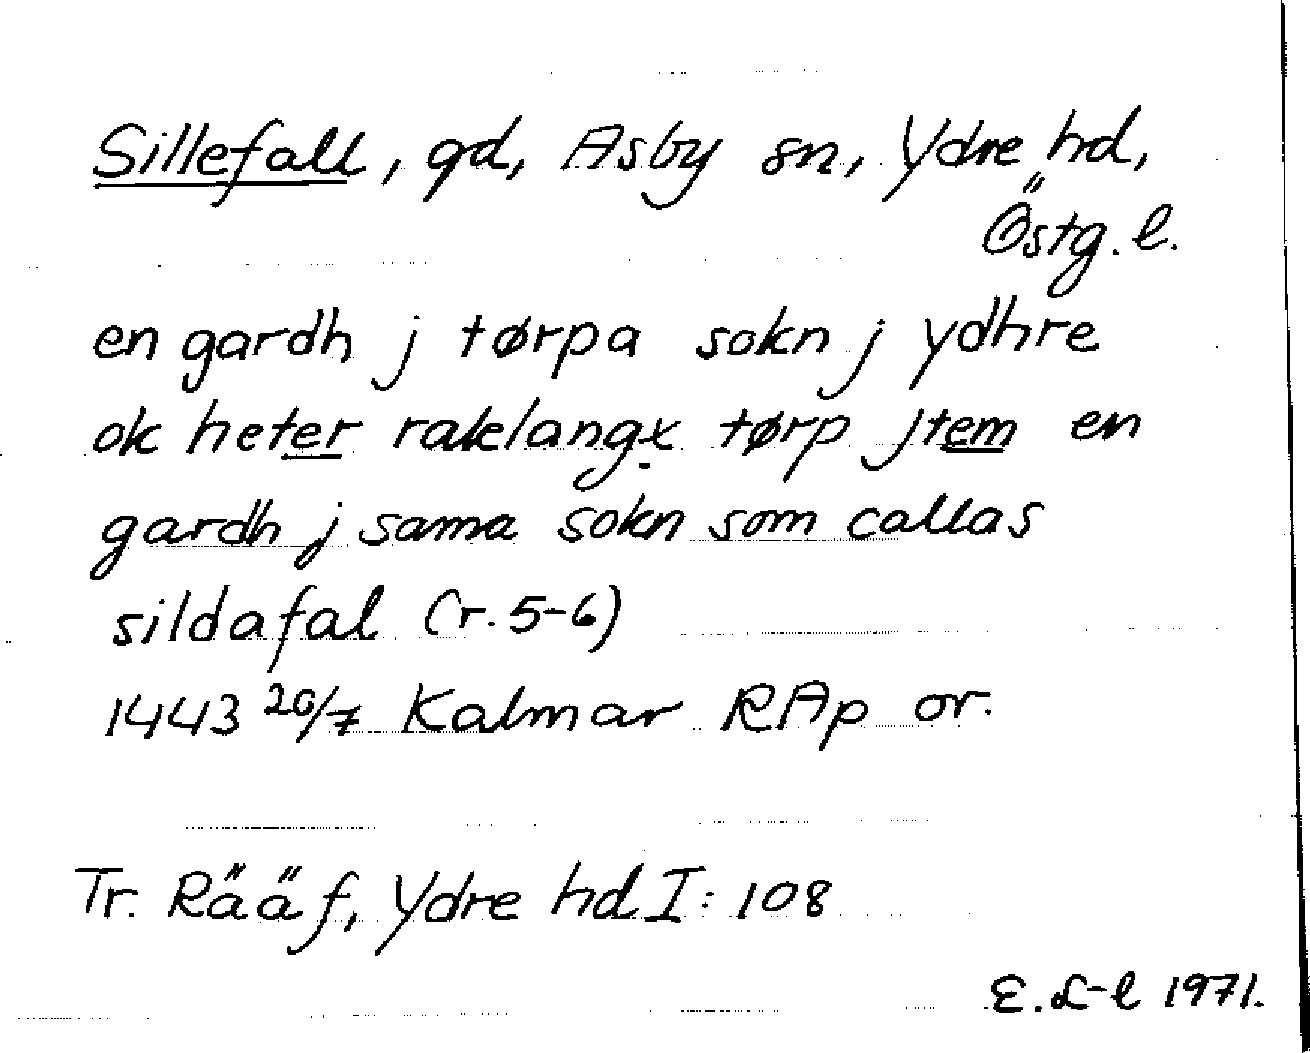 Sillefall, gd, Asby sn, Ydre hd,
Östg. l.
en gardh j tørpa sokn j ydhre
ok heter rakelangx tørp jtem en
gardh j sama sokn som callas
sildafal (r. 5-6)
1443 20/7 Kalmar RAp or.
Tr. Rääf, Ydre hd I: 108
E. L-l 1971.